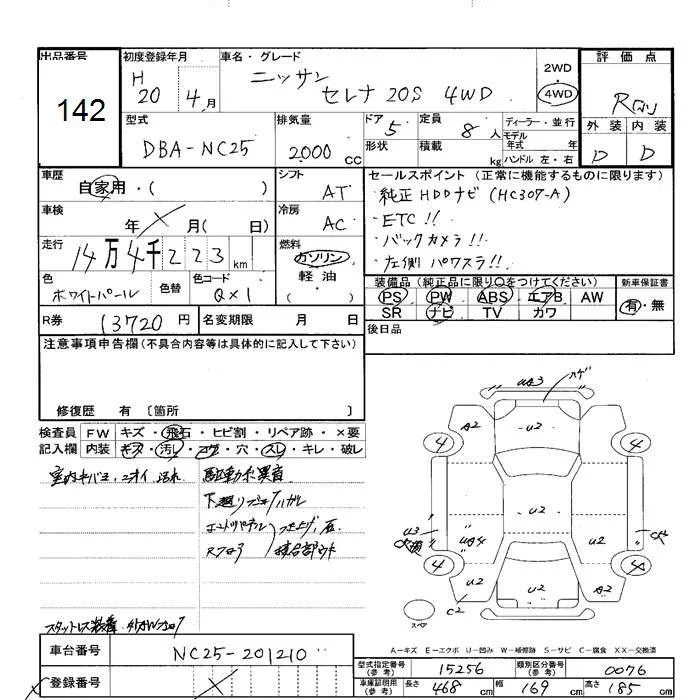 出品番号
142
初度登録年月
H 20 4月
車名・グレード
ニッサン
セレナ 20S 4WD
2WD
4WD
評価点
R
外装 内装
D D
型式
DBA-NC25
排気量
2000 CC
ドア
5
形状
定員
8人
積載
kg
ディーラー・並行
モデル年式 年
ハンドル 左・右
車歴
自家用・( )
シフト
AT
車検
年 月( 日)
冷房
AC
走行
14万4千223km
燃料
ガソリン
軽油
( )
色
ホワイトパール
色替
色コード
QX1
R券
13720円
名変期限 月 日
セールスポイント(正常に機能するものに限ります)
・純正HDDナビ(HC307-A)
・ETC!!
・バックカメラ!!
・左側パワスラ!!
装備品(純正品に限り○をつけてください)
PS PW ABS エアB AW
SR ナビ TV カワ
新車保証書
有・無
後日品
注意事項申告欄(不具合内容等は具体的に記入して下さい)
修復歴 有〔箇所 〕
検査員記入欄
FW キズ・飛石・ヒビ割・リペア跡・×要
内装 キズ・汚レ・コゲ・穴・スレ・キレ・破レ
室内キバミ、ニオイ 汚れ
駆動系異音
スタットレス装着
UA3
ハゲ
A2
U2
4
4
U2
U3
UA4
U2
U2
4
4
U2
U2
A2
C2
スペア
A-キズ E-エクボ U-凹み W-補修跡 S-サビ C-腐食 XX-交換済
車台番号
NC25-201210
登録番号
型式指定番号(参考)
15256
類別区分番号(参考)
0076
車庫証明用(参考)
長さ 468cm 幅 169cm 高さ 185cm